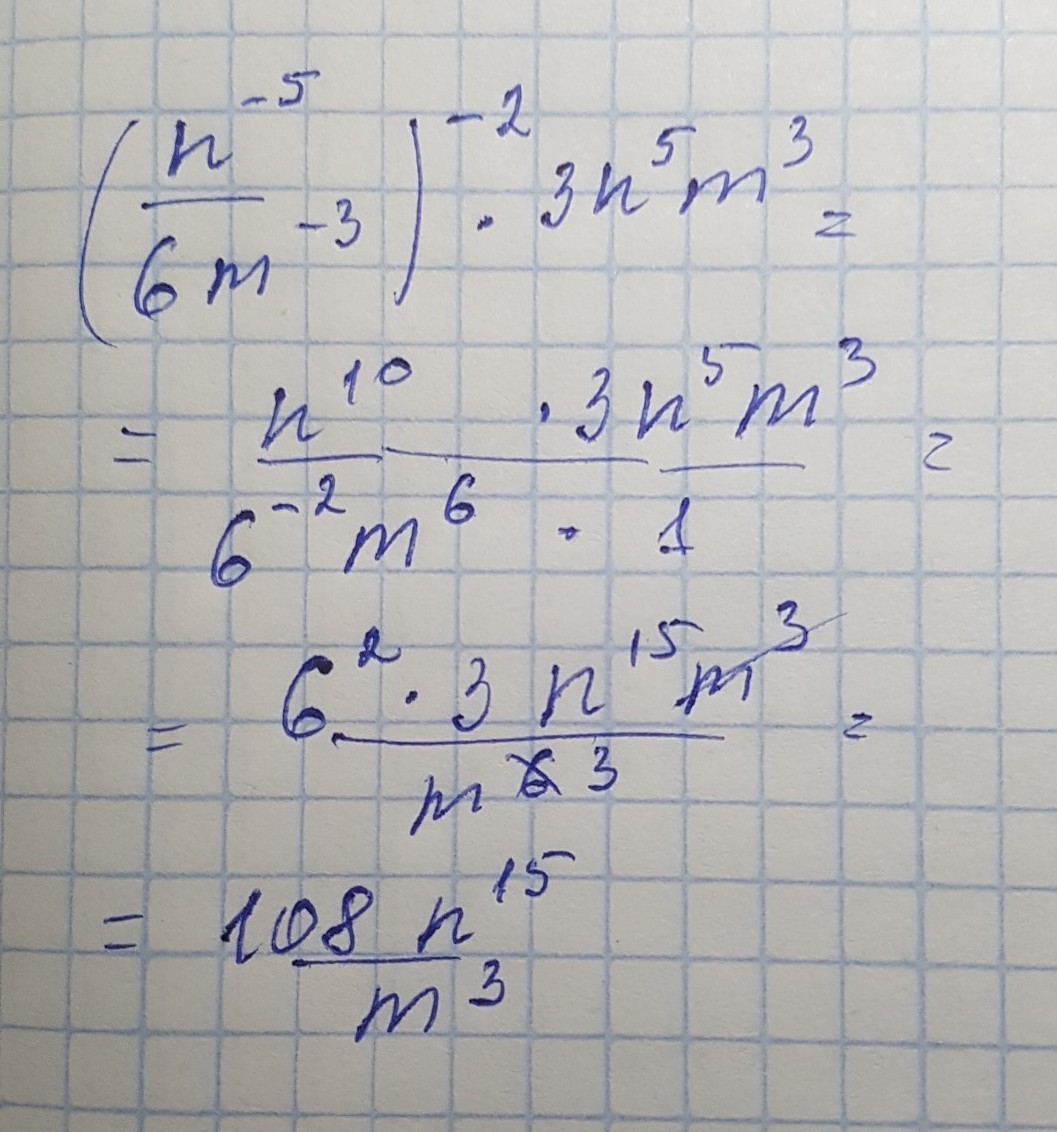 (n⁻⁵ / 6m⁻³)⁻² · 3n⁵m³ =
= n¹⁰ · 3n⁵m³ / 6⁻²m⁶ · 1 =
= 6² · 3n¹⁵m³ / m⁶ 3 =
= 108 n¹⁵ / m³